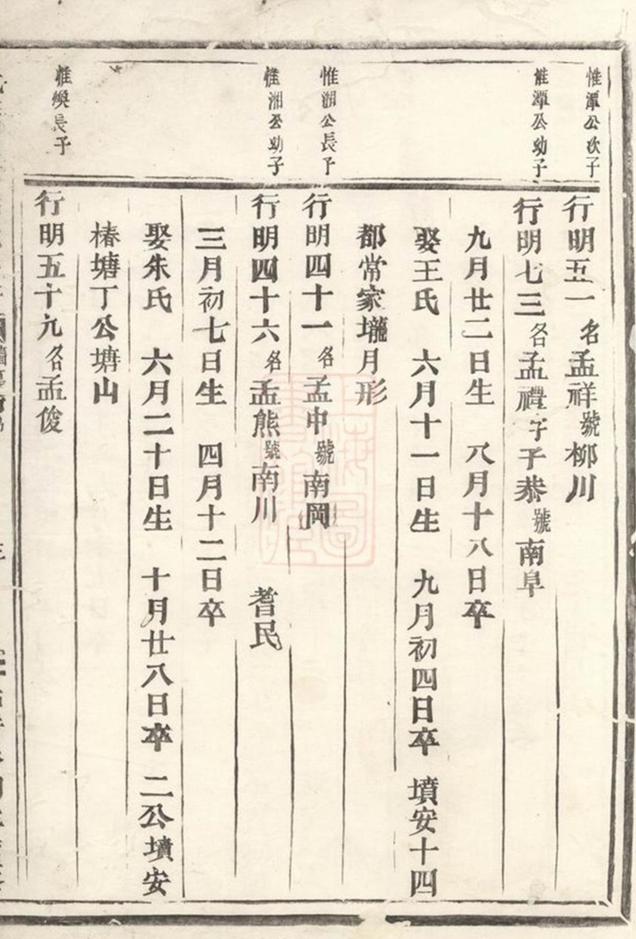 惟潭公次子
行明五一名孟祥號柳川
惟潭公幼子
行明七三名孟禮字子恭號南阜
九月廿二日生 八月十八日卒
娶王氏 六月十一日生 九月初四日卒 墳安十四
都常家壠月形
惟湖公長子
行明四十一名孟中號南岡
惟湘公幼子
行明四十六名孟熊號南川 耆民
三月初七日生 四月十二日卒
娶朱氏 六月二十日生 十月廿八日卒 二公墳安
椿塘丁公塘山
惟煥長子
行明五十九名孟俊